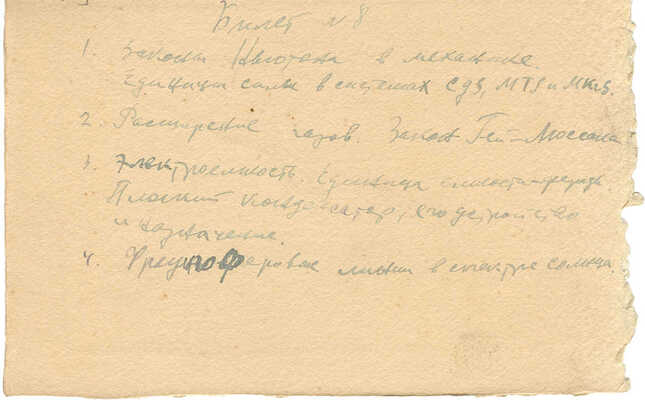 Билет №8
1. Законы Ньютона в механике.
Единицы силы в системах СGS, MTS и MKS.
2. Расширение газов. Закон Гей-Люссака
3. Электроемкость. Единица емкости-фарада.
Плоский конденсатор, его устройство
и назначение.
4. Фраунгоферовы линии в спектре солнца.